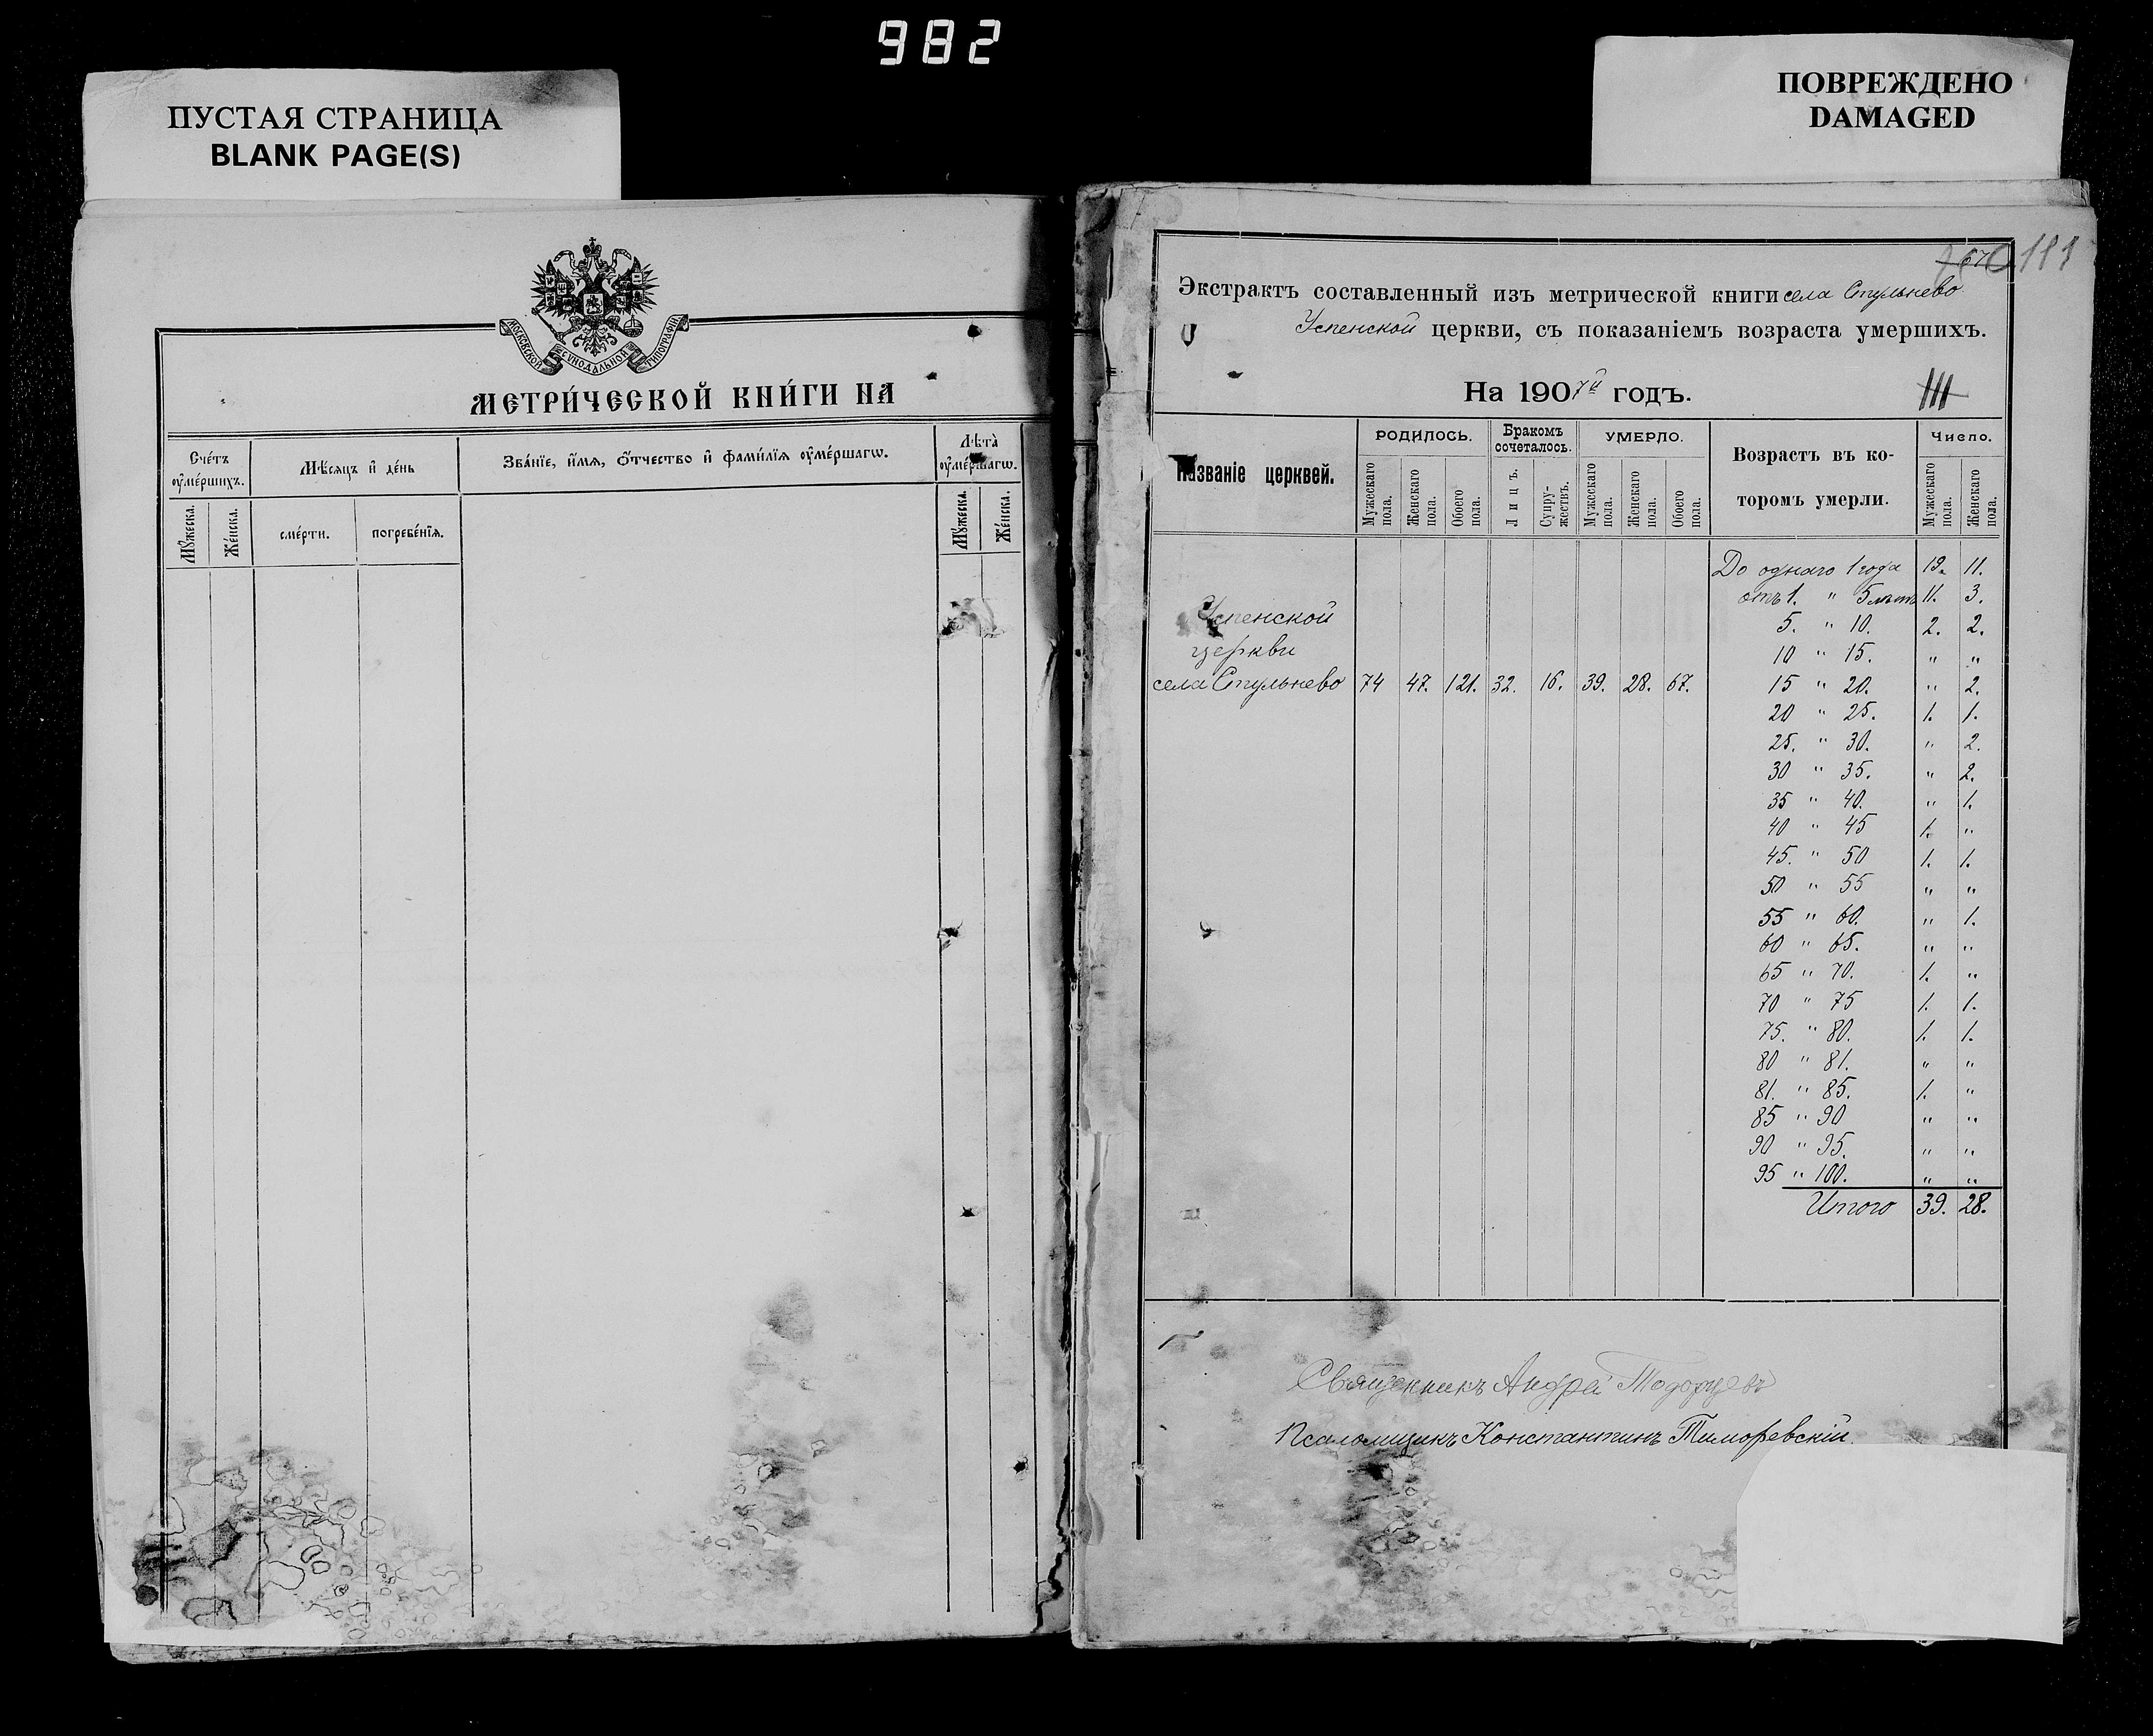 982
ПУСТАЯ СТРАНИЦА
BLANK PAGE(S)
ПОВРЕЖДЕНО
DAMAGED
МОСКОВСКОЙ СѴНОДАЛЬНОЙ ТИПОГРАФІИ
МЕТРИ́ЧЕСКОЙ КНИ́ГИ НА
Счéтъ ᲂу҆мéршихъ.
Мꙋ́жеска.
Жéнска.
Мѣ́сяцъ и҆ дéнь
смéрти.
погребéнїя.
Звáнїе, и҆́мѧ, ѻ҆́тчество и҆ фами́лїя ᲂу҆мéршагѡ.
Лѣтà ᲂу҆мéршагѡ.
Мꙋ́жеска.
Жéнска.
Экстрактъ составленный изъ метрической книги села Стульнево
Успенской церкви, съ показаніемъ возраста умершихъ.
На 1907й годъ.
III
Названіе церквей.
РОДИЛОСЬ.
Мужескаго пола.
Женскаго пола.
Обоего пола.
Бракомъ сочеталось.
Лицъ.
Супружествъ.
УМЕРЛО.
Мужескаго пола.
Женскаго пола.
Обоего пола.
Возрастъ въ которомъ умерли.
Число.
Мужескаго пола.
Женскаго пола.
До однаго 1 года 19. 11.
отъ 1. " 5 лѣтъ 11. 3.
Успенской
5. " 10. 2. 2.
церкви
10 " 15. " "
села Стульнево 74 47. 121. 32. 16. 39. 28. 67. 15 " 20. " 2.
20 " 25. 1. 1.
25. " 30. " 2.
30 " 35. " 2.
35 " 40. " 1.
40 " 45 1. "
45. " 50 1. 1.
50 " 55 " "
55 " 60. " 1.
60 " 65. " "
65 " 70. 1. "
70 " 75 1. 1.
75. " 80. 1. 1.
80 " 81. " "
81. " 85. 1. "
85 " 90 " "
90 " 95. " "
95 " 100. " "
Итого 39. 28.
Священникъ Андрей
Псаломщикъ Константинъ Тиморевскій.